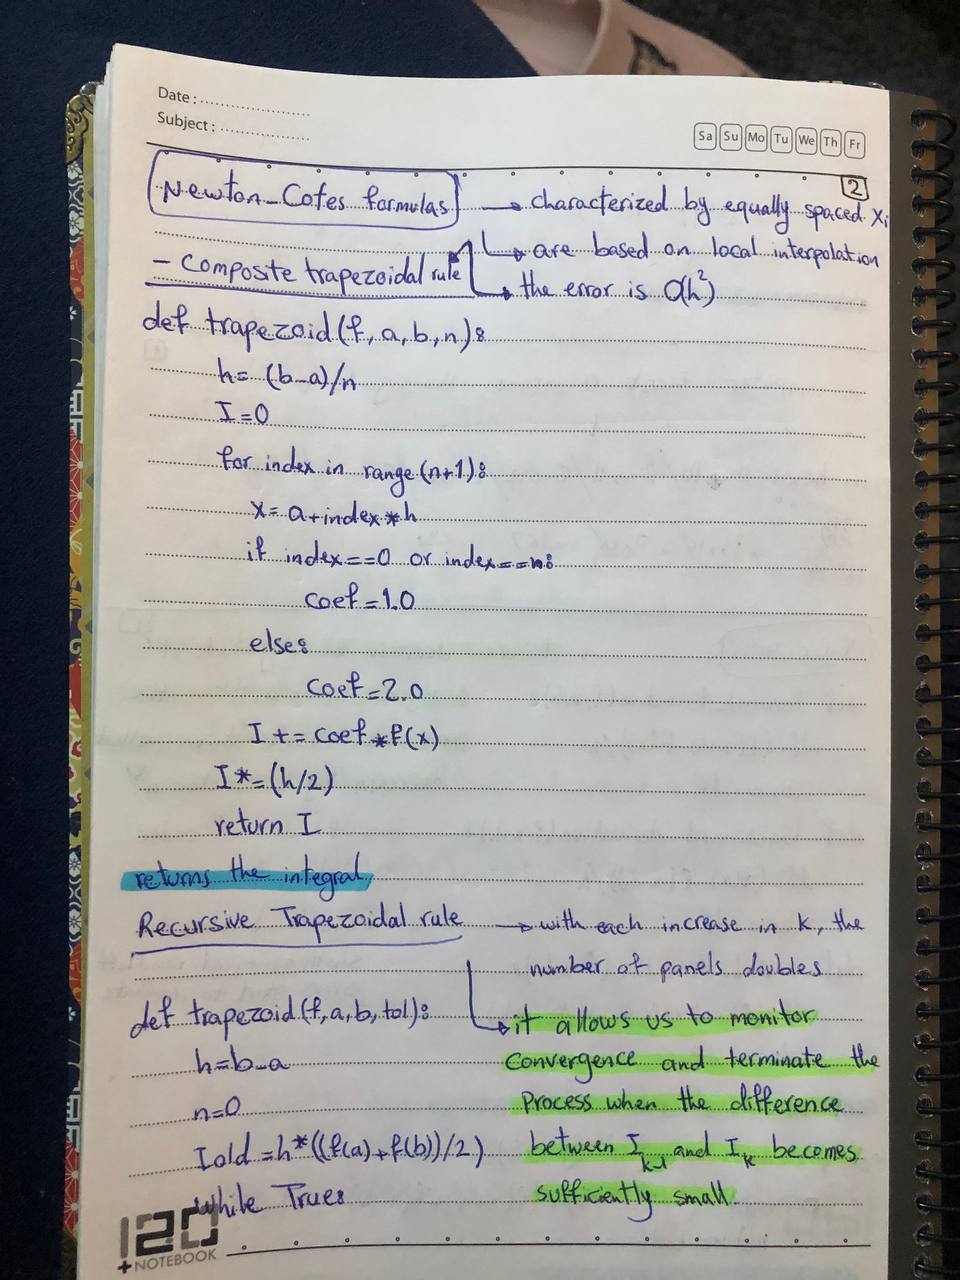 Date :
Subject :
Sa Su Mo Tu We Th Fr
2
Newton-Cotes formulas → characterized by equally spaced xi
→ are based on local interpolation
- Composite trapezoidal rule
→ the error is O(h²)
def trapezoid(f, a, b, n):
h= (b-a)/n
I=0
for index in range(n+1):
x= a+index*h
if index==0 or index==n:
coef=1.0
else:
coef=2.0
I += coef*f(x)
I*=(h/2)
return I
returns the integral
Recursive Trapezoidal rule → with each increase in k, the
number of panels doubles
def trapezoid(f, a, b, tol):
→ it allows us to monitor
h=b-a
convergence and terminate the
n=0
process when the difference
Iold =h*((f(a)+f(b))/2)
between Ik-1 and Ik becomes
while True:
sufficiently small
120
+NOTEBOOK